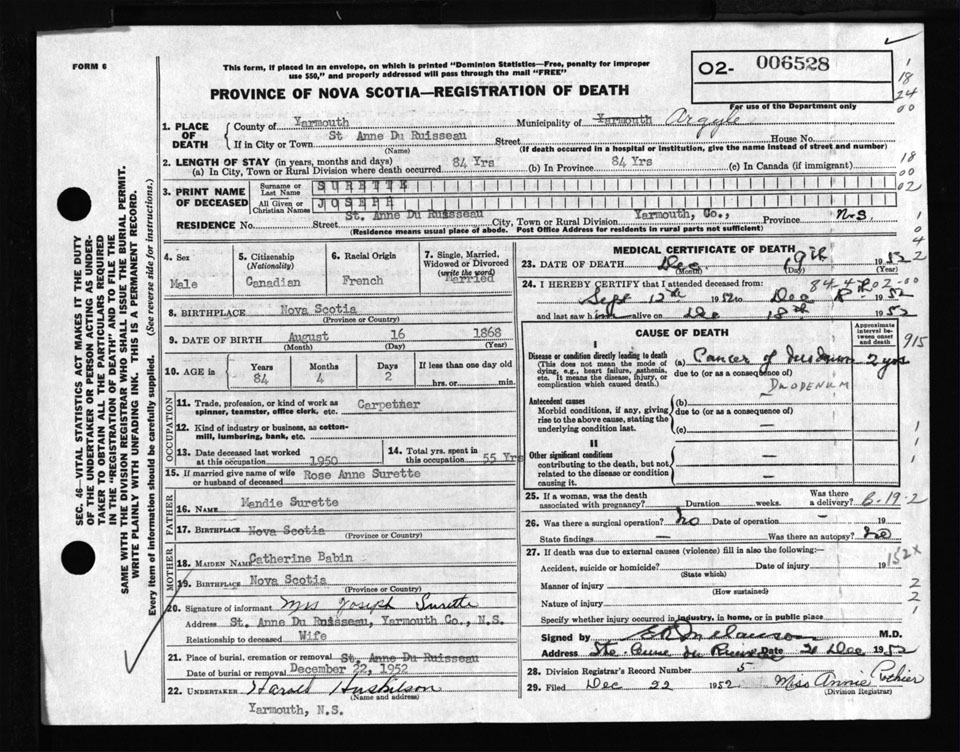 FORM 6
This form, if placed in an envelope, on which is printed "Dominion Statistics—Free, penalty for improper
use $50," and properly addressed will pass through the mail "FREE"
02- 006528
PROVINCE OF NOVA SCOTIA—REGISTRATION OF DEATH
For use of the Department only
1. PLACE OF DEATH
County of Yarmouth Municipality of Yarmouth Argyle
If in City or Town St. Anne Du Ruisseau Street House No.
(Name) (If death occurred in a hospital or institution, give the name instead of street and number)
2. LENGTH OF STAY (in years, months and days)
(a) In City, Town or Rural Division where death occurred 84 Yrs (b) In Province 84 Yrs (c) In Canada (if immigrant)
3. PRINT NAME OF DECEASED
Surname or Last Name SURETTE
All Given or Christian Names JOSEPH
RESIDENCE No. Street St. Anne Du Ruisseau City, Town or Rural Division Yarmouth, Co., Province N.S.
(Residence means usual place of abode. Post Office Address for residents in rural parts not sufficient)
4. Sex
Male
5. Citizenship
(Nationality)
Canadian
6. Racial Origin
French
7. Single, Married,
Widowed or Divorced
(write the word)
Married
8. BIRTHPLACE Nova Scotia
(Province or Country)
9. DATE OF BIRTH August 16 1868
(Month) (Day) (Year)
10. AGE in
Years Months Days If less than one day old
84 4 2 hrs. or min.
OCCUPATION
11. Trade, profession, or kind of work as
spinner, teamster, office clerk, etc. Carpetner
12. Kind of industry or business, as cotton-
mill, lumbering, bank, etc.
13. Date deceased last worked
at this occupation 1950
14. Total yrs. spent in
this occupation 55 Yrs
15. If married give name of wife
or husband of deceased Rose Anne Surette
FATHER
16. NAME Mendie Surette
17. BIRTHPLACE Nova Scotia
(Province or Country)
MOTHER
18. MAIDEN NAME Catherine Babin
19. BIRTHPLACE Nova Scotia
(Province or Country)
20. Signature of informant Mrs Joseph Surette
Address St. Anne Du Ruisseau, Yarmouth Co., N.S.
Relationship to deceased Wife
21. Place of burial, cremation or removal St. Anne Du Ruisseau
Date of burial or removal December 22, 1952
22. UNDERTAKER Harold Huskilson
(Name and address)
Yarmouth, N.S.
MEDICAL CERTIFICATE OF DEATH
23. DATE OF DEATH Dec 19th 1952
(Month) (Day) (Year)
24. I HEREBY CERTIFY that I attended deceased from:
Sept 12th 1952 to Dec 1952
and last saw h alive on Dec 18th 1952
CAUSE OF DEATH
Approximate
interval be-
tween onset
and death
I
Disease or condition directly leading to death
(This does not mean the mode of
dying, e.g., heart failure, asthenia,
etc. It means the disease, injury, or
complication which caused death.)
(a) Cancer of 2 yrs
due to (or as a consequence of)
DUODENUM
Antecedent causes
Morbid conditions, if any, giving
rise to the above cause, stating the
underlying condition last.
(b)
due to (or as a consequence of)
(c)
II
Other significant conditions
contributing to the death, but not
related to the disease or condition
causing it.
25. If a woman, was the death
associated with pregnancy? Duration weeks. Was there
a delivery? 6-19-2
26. Was there a surgical operation? No Date of operation — 19
State findings — Was there an autopsy? No
27. If death was due to external causes (violence) fill in also the following:—
Accident, suicide or homicide? Date of injury 19
(State which)
Manner of injury
(How sustained)
Nature of injury
Specify whether injury occurred in industry, in home, or in public place
Signed by M.D.
Address Ste Date 20 Dec 1952
28. Division Registrar's Record Number 5
29. Filed Dec 22 1952 Miss Annie Pothier
(Division Registrar)
SEC. 46—VITAL STATISTICS ACT MAKES IT THE DUTY
OF THE UNDERTAKER OR PERSON ACTING AS UNDER-
TAKER TO OBTAIN ALL THE PARTICULARS REQUIRED
IN THE "REGISTRATION OF DEATH" AND TO FILE THE
SAME WITH THE DIVISION REGISTRAR WHO SHALL ISSUE THE BURIAL PERMIT.
WRITE PLAINLY WITH UNFADING INK. THIS IS A PERMANENT RECORD.
Every item of information should be carefully supplied. (See reverse side for instructions.)
1
18
24
00
18
00
02
1
0
4
2
915
1
1
1
152x
2
2
1